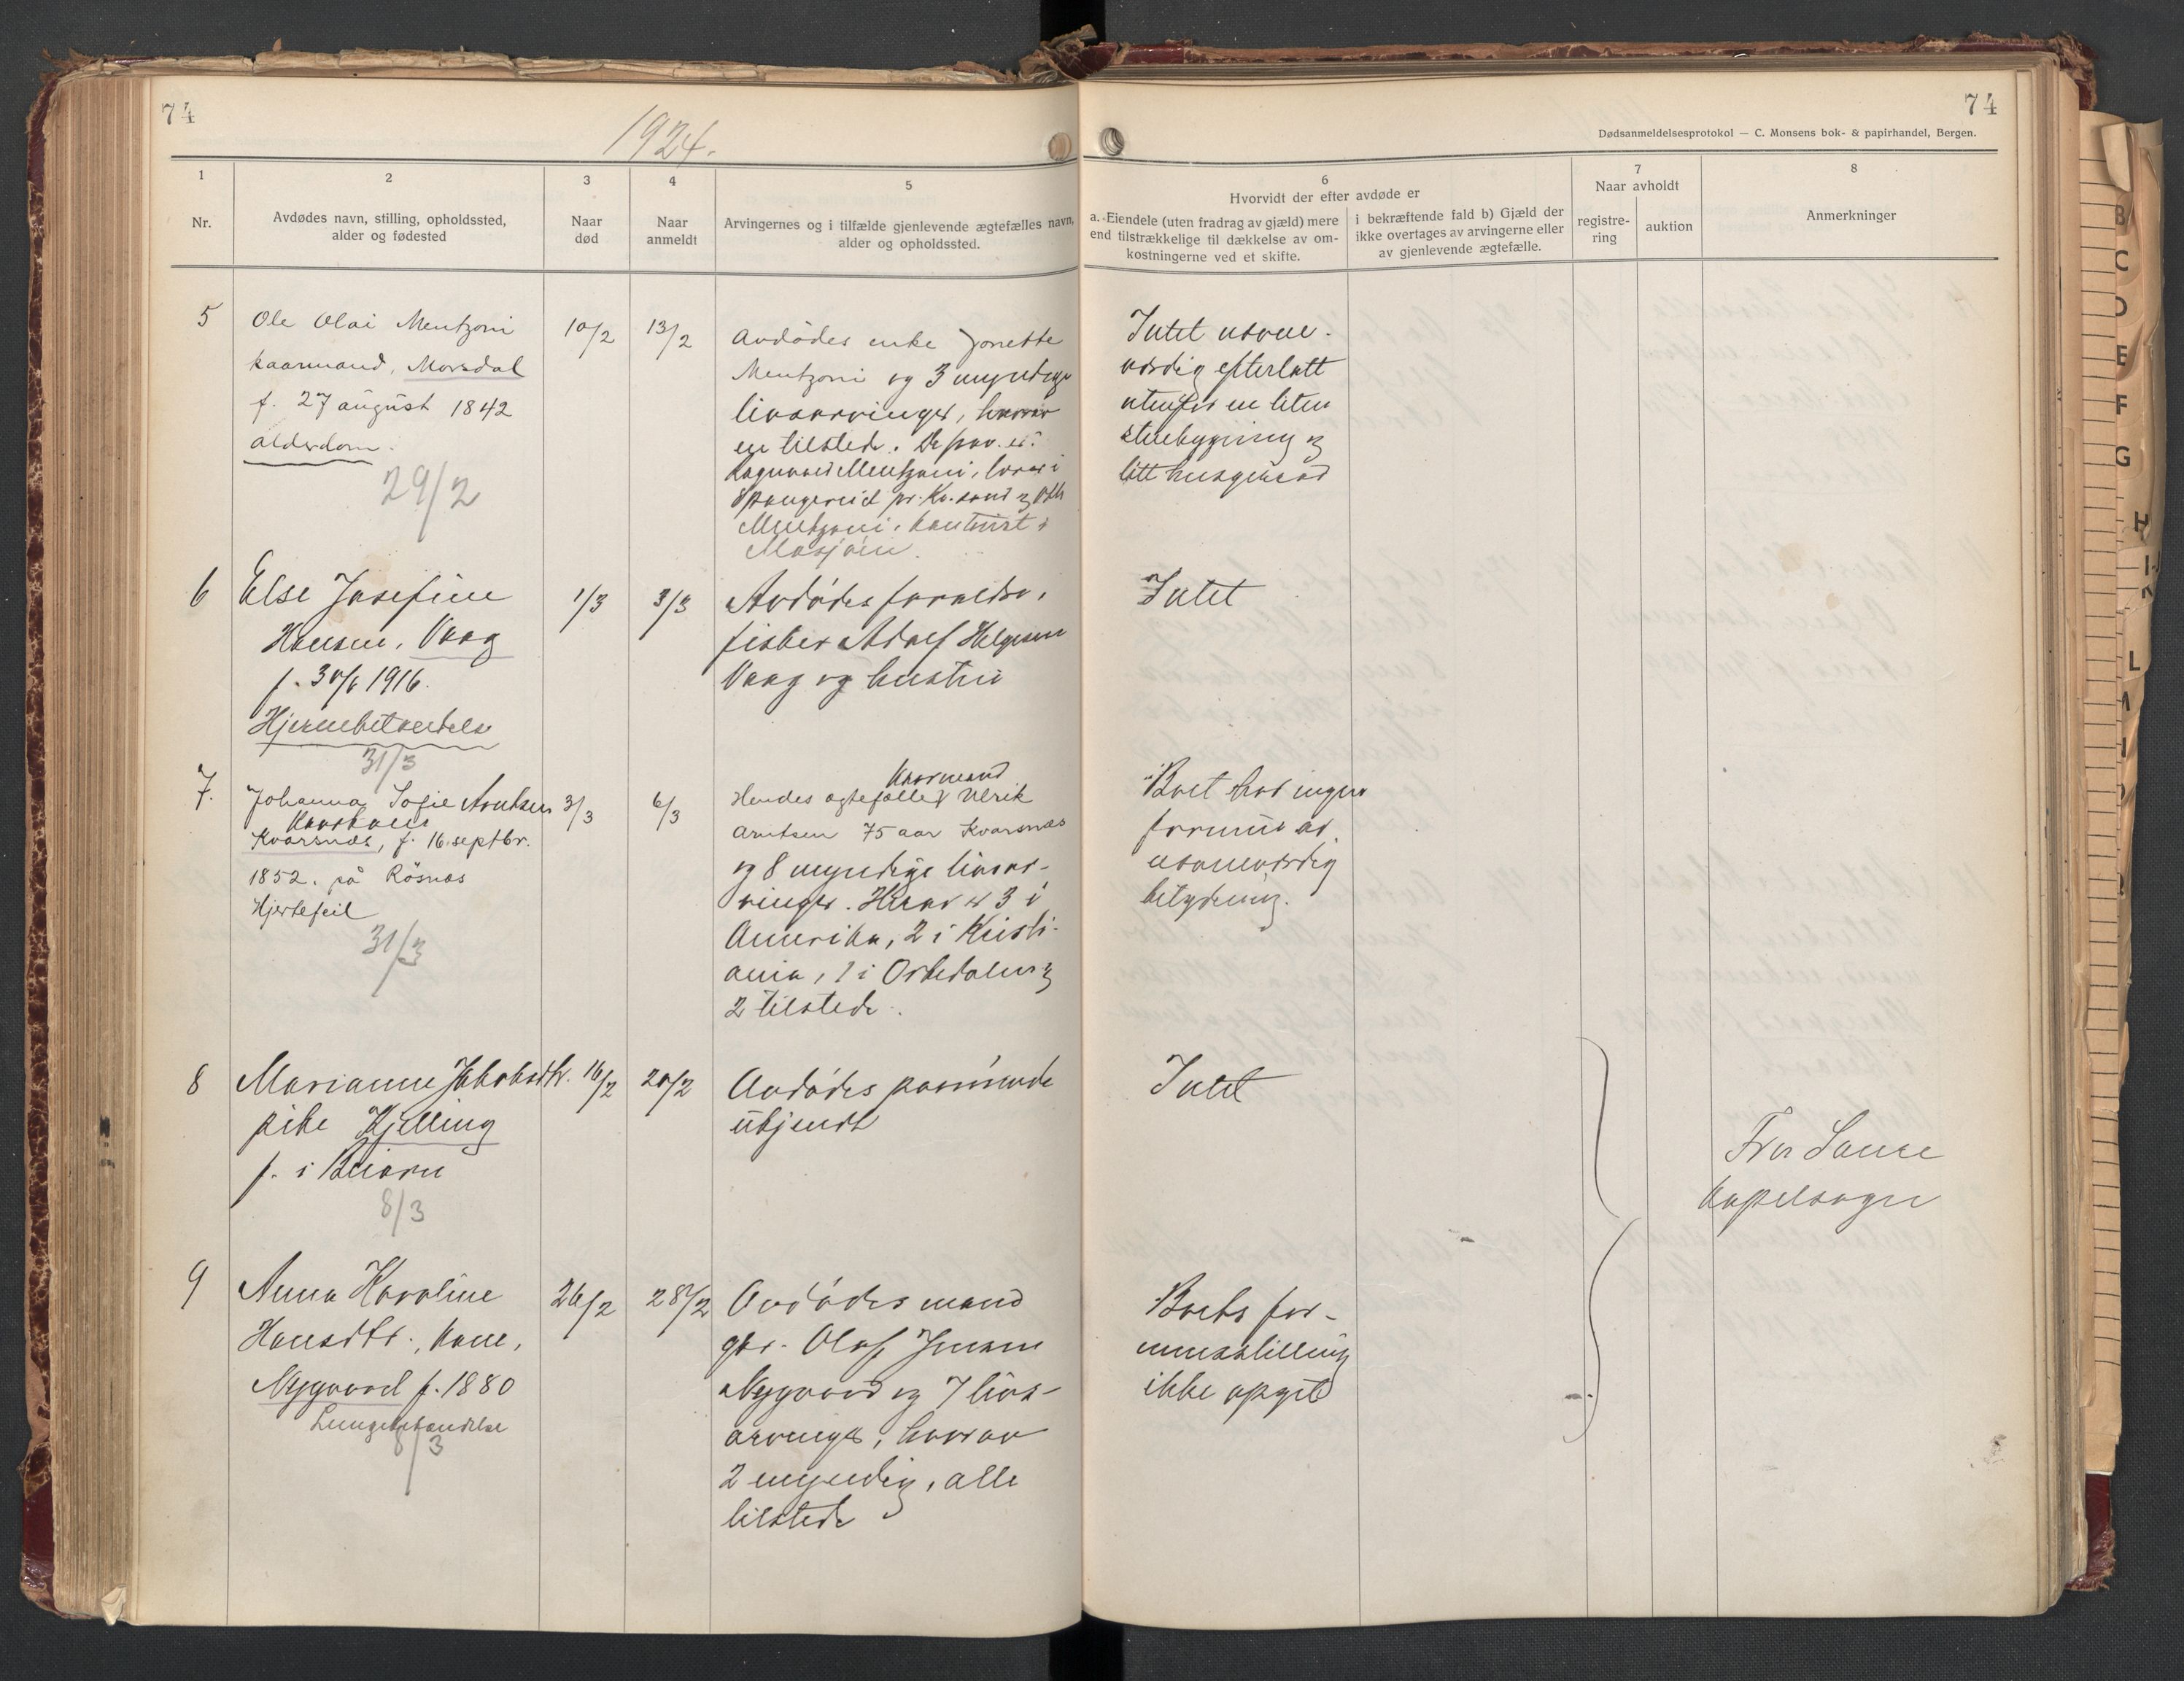 74
1924.
74
Dødsanmeldelsesprotokol — C. Monsens bok- & papirhandel, Bergen.
1
Nr.
2
Avdødes navn, stilling, opholdssted,
alder og fødested
3
Naar
død
4
Naar
anmeldt
5
Arvingernes og i tilfælde gjenlevende ægtefælles navn,
alder og opholdssted.
6
Hvorvidt der efter avdøde er
a. Eiendele (uten fradrag av gjæld) mere
end tilstrækkelige til dækkelse av om-
kostningerne ved et skifte.
i bekræftende fald b) Gjæld der
ikke overtages av arvingerne eller
av gjenlevende ægtefælle.
7
Naar avholdt
registre-
ring
auktion
8
Anmerkninger
5
Ole Olai Mentzoni
kaarmand, Morsdal
f. 27 august 1842
alderdom.
29/2
10/2
13/2
Avdødes enke Jonette
Mentzoni og 3 myndige
livsarvinger, hvorav
en tilstede. De frav. er:
Ragnvald Mentzoni, lærer i
Spangereid pr. Kr.sand og
Mentzoni, kontorist i
Mosjøen.
Intet navne-
værdig efterlatt
utenfor en liten
stuebygning og
litt husgeraad
6
Else Josefine
Hansen, Vaag
f. 30/6 1916.
Hjernebetændelse
31/3
1/3
3/3
Avdødes forældre,
fisker Adolf Helgesen
Vaag og hustru
Intet
7.
Johanna Sofie Arntsen
Kaarkone
Kvarsnæs, f. 16. septbr.
1852. på Røsnæs
Hjertefeil
31/3
3/3
6/3
Kaarmand
Hendes ægtefælle Ulrik
Arntsen 75 aar Kvarsnæs
og 8 myndige livsar-
vinger. Herav er 3 i
Amerika, 2 i Kristi-
ania, 1 i Orkedalen og
2 tilstede.
Boet har ingen
formue av
navneværdig
betydning.
8
Marianne Jakobsdtr.
pike Kjelling
f. i Beiarn
8/3
16/2
20/2
Avdødes paarørende
ukjendt
Intet
Fra Saura
kapelsogn
9
Anna Karoline
Hansdtr., kone,
Nygaard f. 1880
Lungebetændelse
8/3
26/2
28/2
Avdødes mand
gbr. Olaf Jensen
Nygaard og 7 livs-
arvinger, hvorav
2 myndig, alle
tilstede
Boets for-
muesstilling
ikke opgit
B
C
D
E
F
G
H
I-J
K
L
M